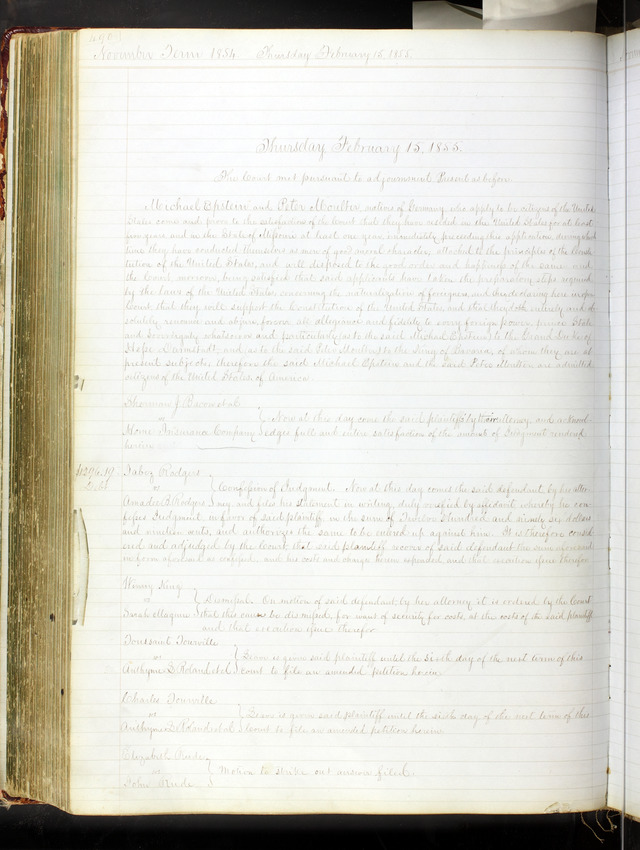 November Term 1854. Thursday February 15, 1855.
Thursday February 15, 1855.
The Court met pursuant to adjournment. Present as before
Michael Epstein and Peter Moulter, natives of Germany, who apply to be citizens of the United
States, come and prove to the satisfaction of the Court that they have resided in the United States for at least
five years, and in the State of Missouri at least one year, immediately preceding this application, during which
time they have conducted themselves as men of good moral character, attached to the principles of the Consti-
tution of the United States, and well disposed to the good order and happiness of the same, and
the Court, moreover, being satisfied that said applicants have taken the preparatory steps required
by the laws of the United States, concerning the naturalization of foreigners, and they declaring here in open
Court that they will support the Constitution of the United States, and that they both entirely and ab-
solutely renounce and abjure forever all allegiance and fidelity to every foreign power, prince, State
and Sovereignty whatsoever and particularly as to the said Michael Epstein to the Grand Duke of
Hesse Darmstadt, and as to the said Peter Moulter to the King of Bavaria, of whom they are at
present subjects, therefore the said Michael Epstein and the said Peter Moulter are admitted
citizens of the United States of America.
Thomas J. et al
vs Now at this day come the said plaintiffs by their attorney, and acknowl-
Insurance Company edges full and entire satisfaction of the amount of Judgment rendered
herein
$1296.19 Jabez Rodgers
vs Confession of Judgment. Now at this day comes the said defendant by his attor-
Amadee Rodgers ney and files his statement in writing, duly verified by affidavit whereby he con-
fesses Judgment, in favor of said plaintiff, in the sum of Twelve Hundred and ninety six dollars
and nineteen cents, and authorizes the same to be entered up against him. It is therefore consid-
ered and adjudged by the Court that said plaintiff recover of said defendant the sum aforesaid
in form aforesaid as confessed and his costs and charges herein expended and that execution issue therefor
King
vs Dismissed. On motion of said defendant by her attorney it is ordered by the Court
Sarah Maguire that this cause be dismissed, for want of security for costs, at the costs of the said plaintiff
and that execution issue therefor
Toussaint Tourville
vs Leave is given said plaintiff until the sixth day of the next term of this
Roland et al Court to file an amended petition herein
Charles Tourville
vs Leave is given said plaintiff until the sixth day of the next term of this
Roland et al Court to file an amended petition herein
Elizabeth Rude
vs Motion to strike out answer filed.
John Rude